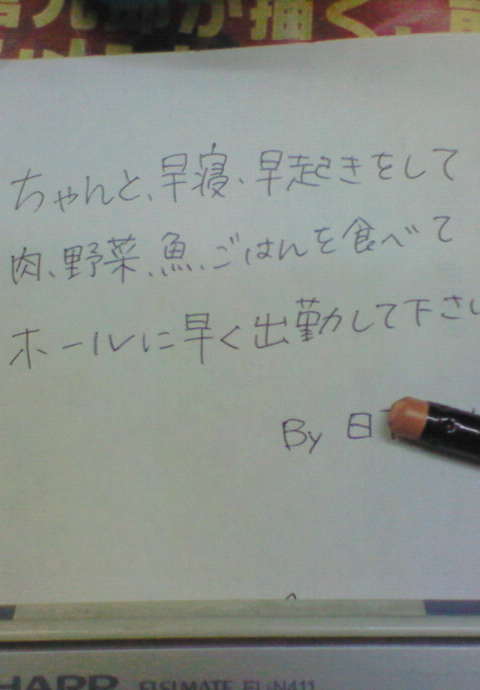 者九郎が描く、
ちゃんと、早寝、早起きをして
肉、野菜、魚、ごはんを食べて
ホールに早く出勤して下さい
By 日
SHARP ELSIMATE EL-N411